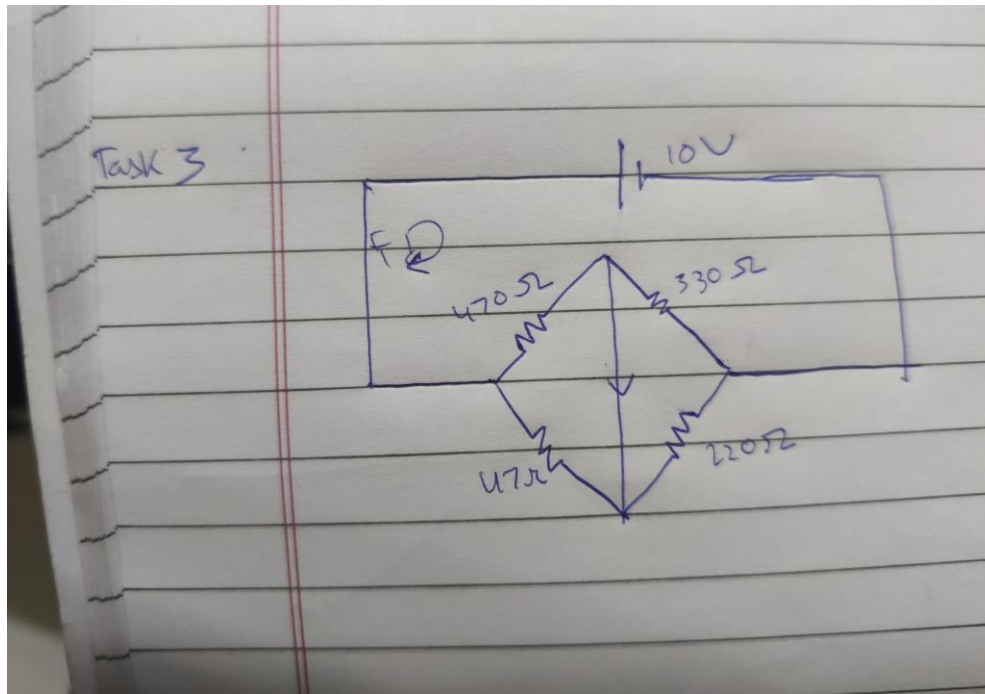 Task 3
10V
470Ω
330Ω
47Ω
220Ω